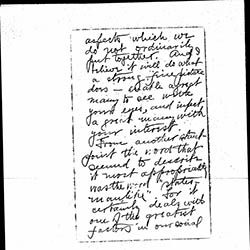 aspects which we
do not ordinarily
put together. And I
believe it will do what
a strong fine picture
does — enable a great
many to see with
your eyes, and infect
a great many with
your interest.
From another stand-
point the word that
seemed to describe
it most appropriately
was the word "states-
manlike" for it
certainly deals with
one of the greatest
factors in our social